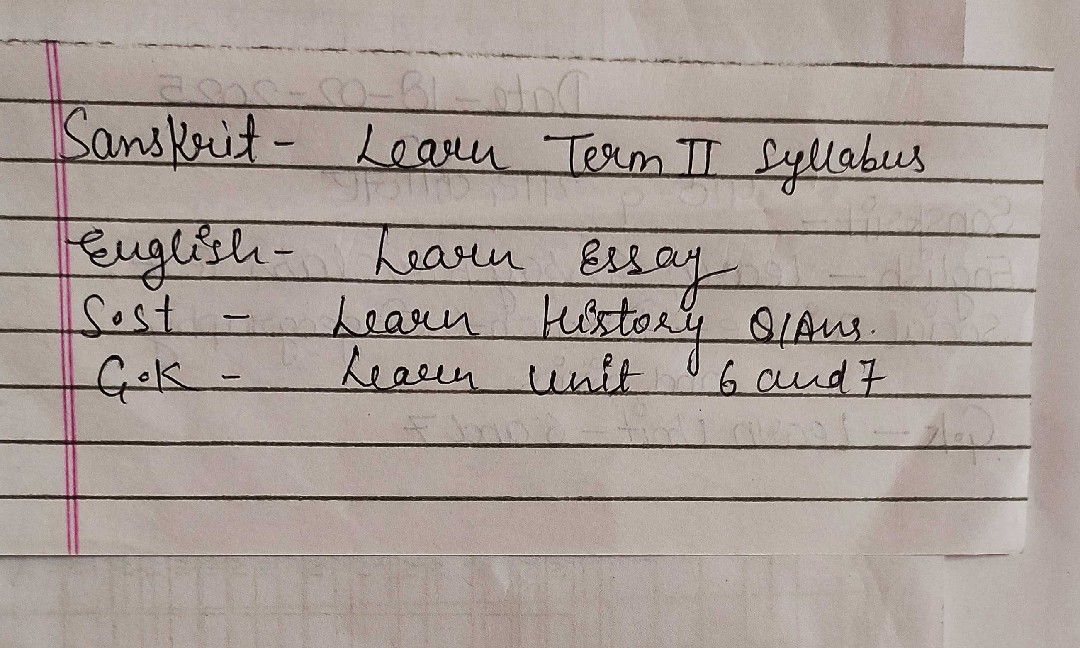 Sanskrit - Learn Term II Syllabus
English - Learn Essay
S.st - Learn History Q/Ans.
G.K - Learn unit 6 and 7